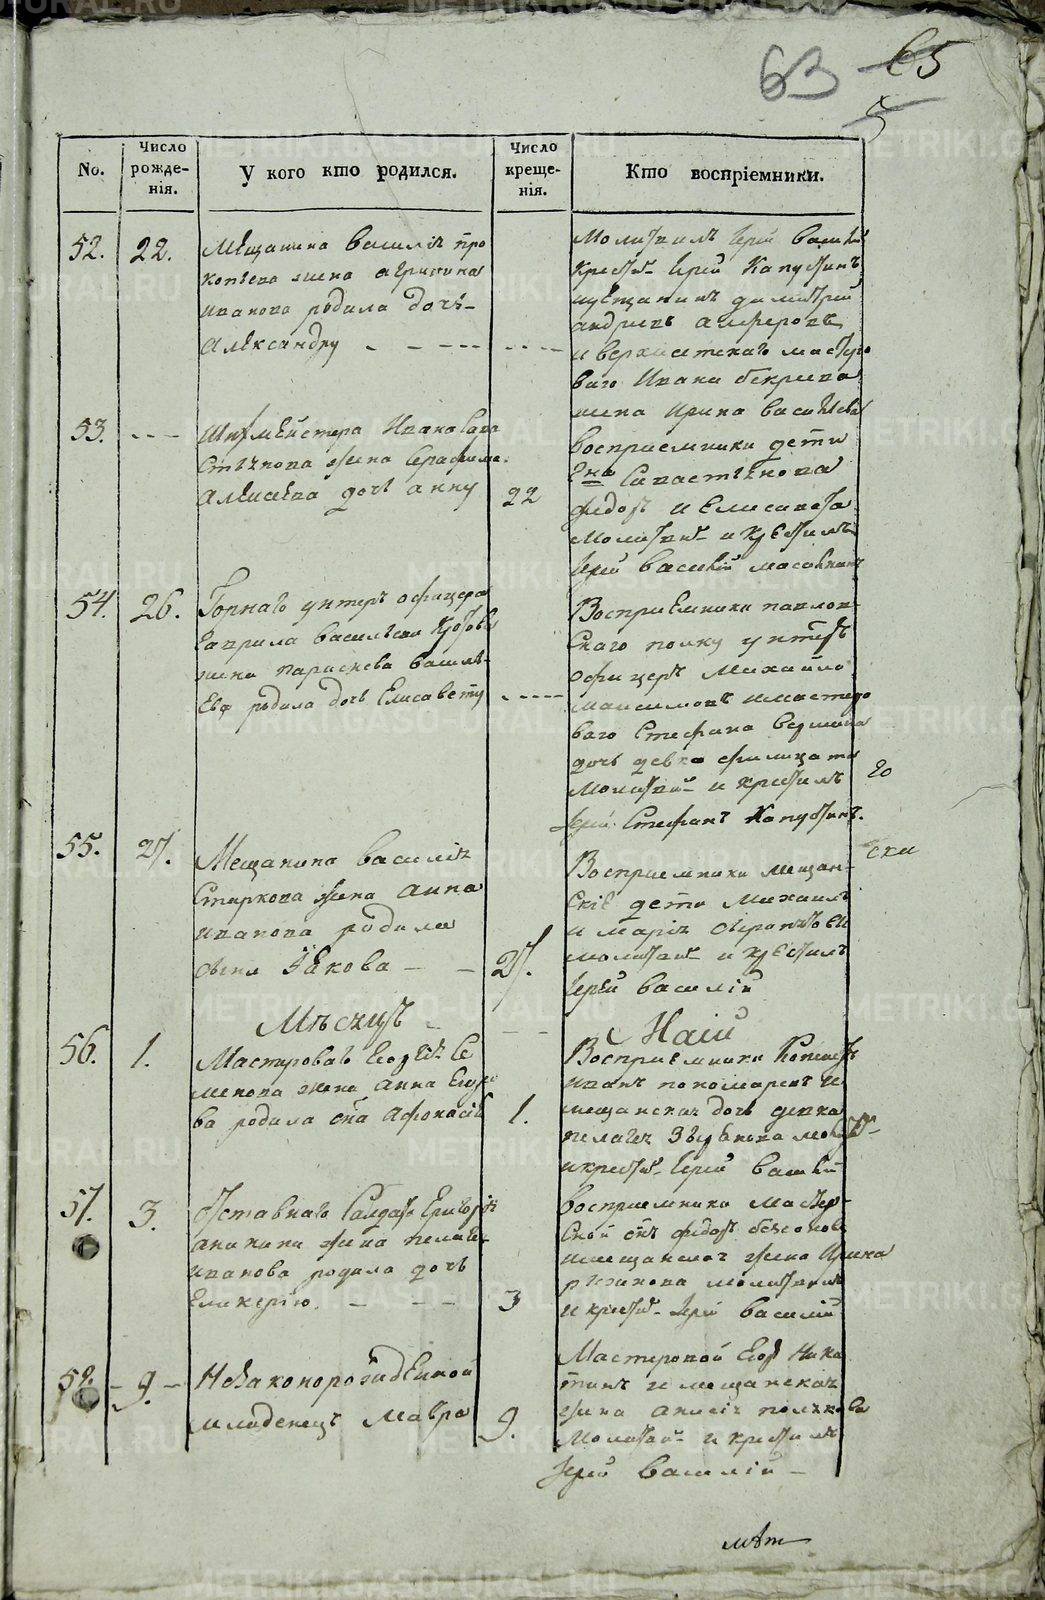 63 65
5
No.
Число рожденія.
У кого кто родился.
Число крещенія.
Кто воспріемники.
52. 22.
Мещанина Василія Про
копьева жена
Иванова родила дочь
Александру
Молитвилъ Іерей Василій
крестилъ Іерей Капустинъ
мещанинъ Димитрій
и верхисетскаго мастеро
ваго Ивана
жена Ирина Васильева
53.
Шихмейстера Ивана Сава
стьянова жена Серафима
Алексеева дочь Анну
22
Восприемники дети
Ево Савастьянова
Федотъ и Елисавета
молитвилъ и крестилъ
Іерей Василій
54. 26.
Горнаго унтеръ офицера
Гаврила Васильева
жена Параскева Василь-
ева родила дочь Елисавету
Восприемники павлов-
скаго полку унтеръ
офицеръ Михайло
Максимовъ и мастеро
ваго Стефана
дочь девка Филицата
Молитвилъ и крестилъ
Іерей Стефанъ Капустинъ.
го
55. 27.
Мещанина Василія
Старкова жена Анна
Иванова родила
сына Іакова
27.
ски
Восприемники мещан-
скіе дети Михаилъ
и Марія
молитвилъ и крестилъ
Іерей Василій
Месяцъ Маій
56. 1.
Мастероваго Георгія Се
менова жена Анна Егоро
ва родила сына Афонасія
1.
Восприемники
Иванъ Пономаревъ и
мещанская дочь девка
Пелагея
и крестилъ Іерей Василій
57. 3.
Отставнаго Солдата Григорія
Ананьина жена Пелагея
Иванова родила дочь
Гликерію.
3
Восприемники мастер-
ской сынъ Федотъ
и мещанская жена Ирина
молитвилъ
и крестилъ Іерей Василій
58. 9.
Незаконорожденной
младенецъ Мавра
9.
Мастеровой Егоръ Ники
тинъ и мещанская
жена Анисія
Молитвилъ и крестилъ
Іерей Василій
METRIKI.GASO-URAL.RU